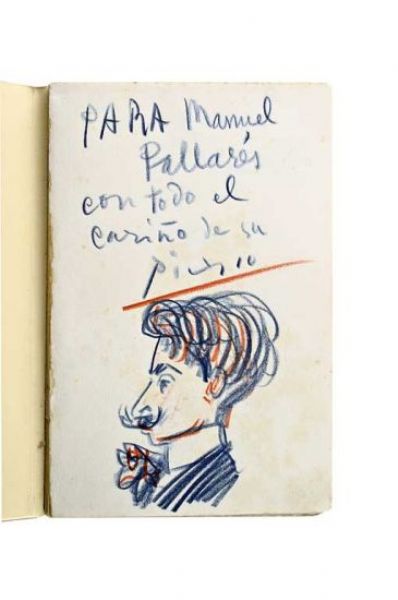 PARA Manuel
Pallarés
con todo el
cariño de su
Picasso